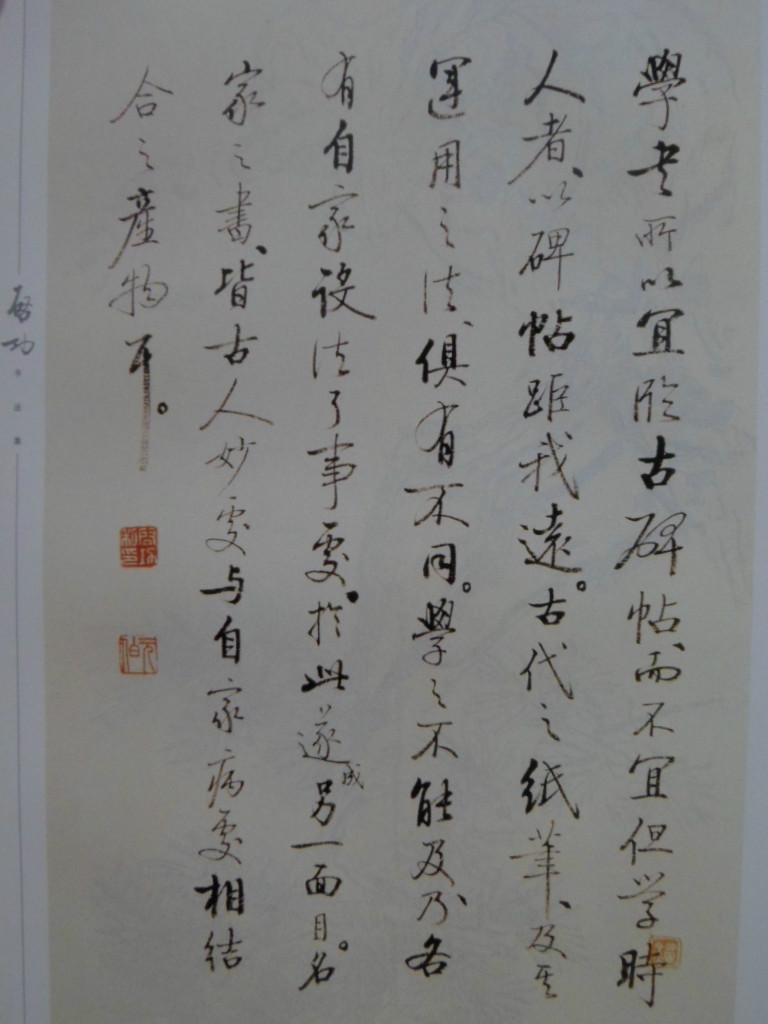 學书所以宜临古碑帖而不宜但学時
人者、以碑帖距我遠。古代之紙筆、及其
運用之法、俱有不同。學之不能及乃各
有自家设法了事處。於此遂成另一面目。名
家之書、皆古人妙處与自家病處相結
合之產物耳。
启功